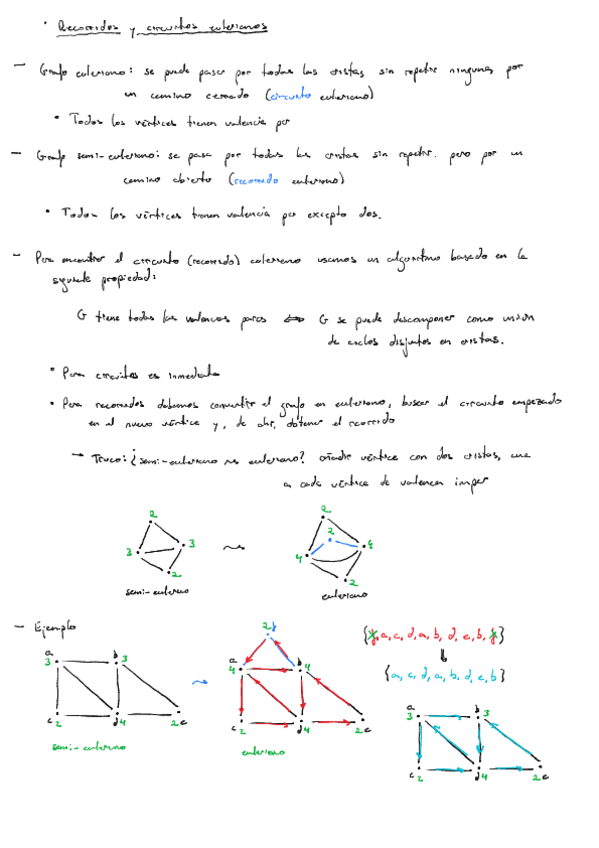 · Recorridos y circuitos eulerianos
— Grafo euleriano: se puede pasar por todas las aristas sin repetir ninguna, por
un camino cerrado (circuito euleriano)
• Todos los vértices tienen valencia par
— Grafo semi-euleriano: se pasa por todas las aristas sin repetir. pero por un
camino abierto (recorrido euleriano)
• Todos los vértices tienen valencia par excepto dos.
— Para encontrar el circuito (recorrido) euleriano usamos un algoritmo basado en la
siguiente propiedad:
G tiene todas las valencias pares ⇔ G se puede descomponer como unión
de ciclos disjuntos en aristas.
• Para circuitos es inmediato
• Para recorridos debemos convertir el grafo en euleriano, buscar el circuito empezado
en el nuevo vértice y, de ahí, obtener el recorrido
→ Truco: ¿semi-euleriano ⇝ euleriano? añadir vértice con dos aristas, una
a cada vértice de valencia impar
2
3 3
2
semi-euleriano
⇝
2
2
4 4
2
euleriano
— Ejemplo
a b
3 3
c 2 d 4 2 e
semi-euleriano
2 f
a b
4 4
c 2 d 4 2 e
euleriano
{f, a, c, d, a, b, d, e, b, f}
⇓
{a, c, d, a, b, d, e, b}
a b
3 3
c 2 d 4 2 e